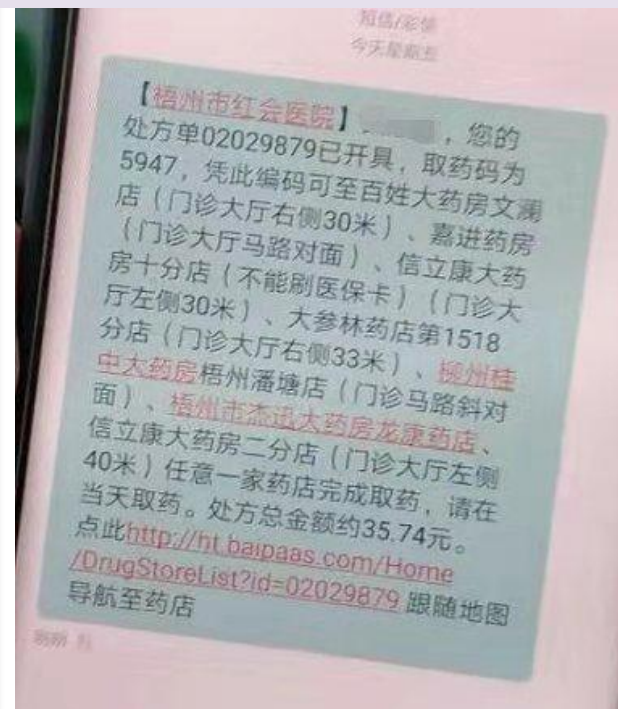 短信/彩信
今天星期五
【梧州市红会医院】 ，您的
处方单02029879已开具，取药码为
5947，凭此编码可至百姓大药房文澜
店（门诊大厅右侧30米）、嘉进药房
（门诊大厅马路对面）、信立康大药
房十分店（不能刷医保卡）（门诊大
厅左侧30米）、大参林药店第1518
分店（门诊大厅右侧33米）、柳州桂
中大药房梧州潘塘店（门诊马路斜对
面）、梧州市杰迅大药房龙康药店、
信立康大药房二分店（门诊大厅左侧
40米）任意一家药店完成取药，请在
当天取药。处方总金额约35.74元。
点此http://ht.baipaas.com/Home
/DrugStoreList?id=02029879 跟随地图
导航至药店